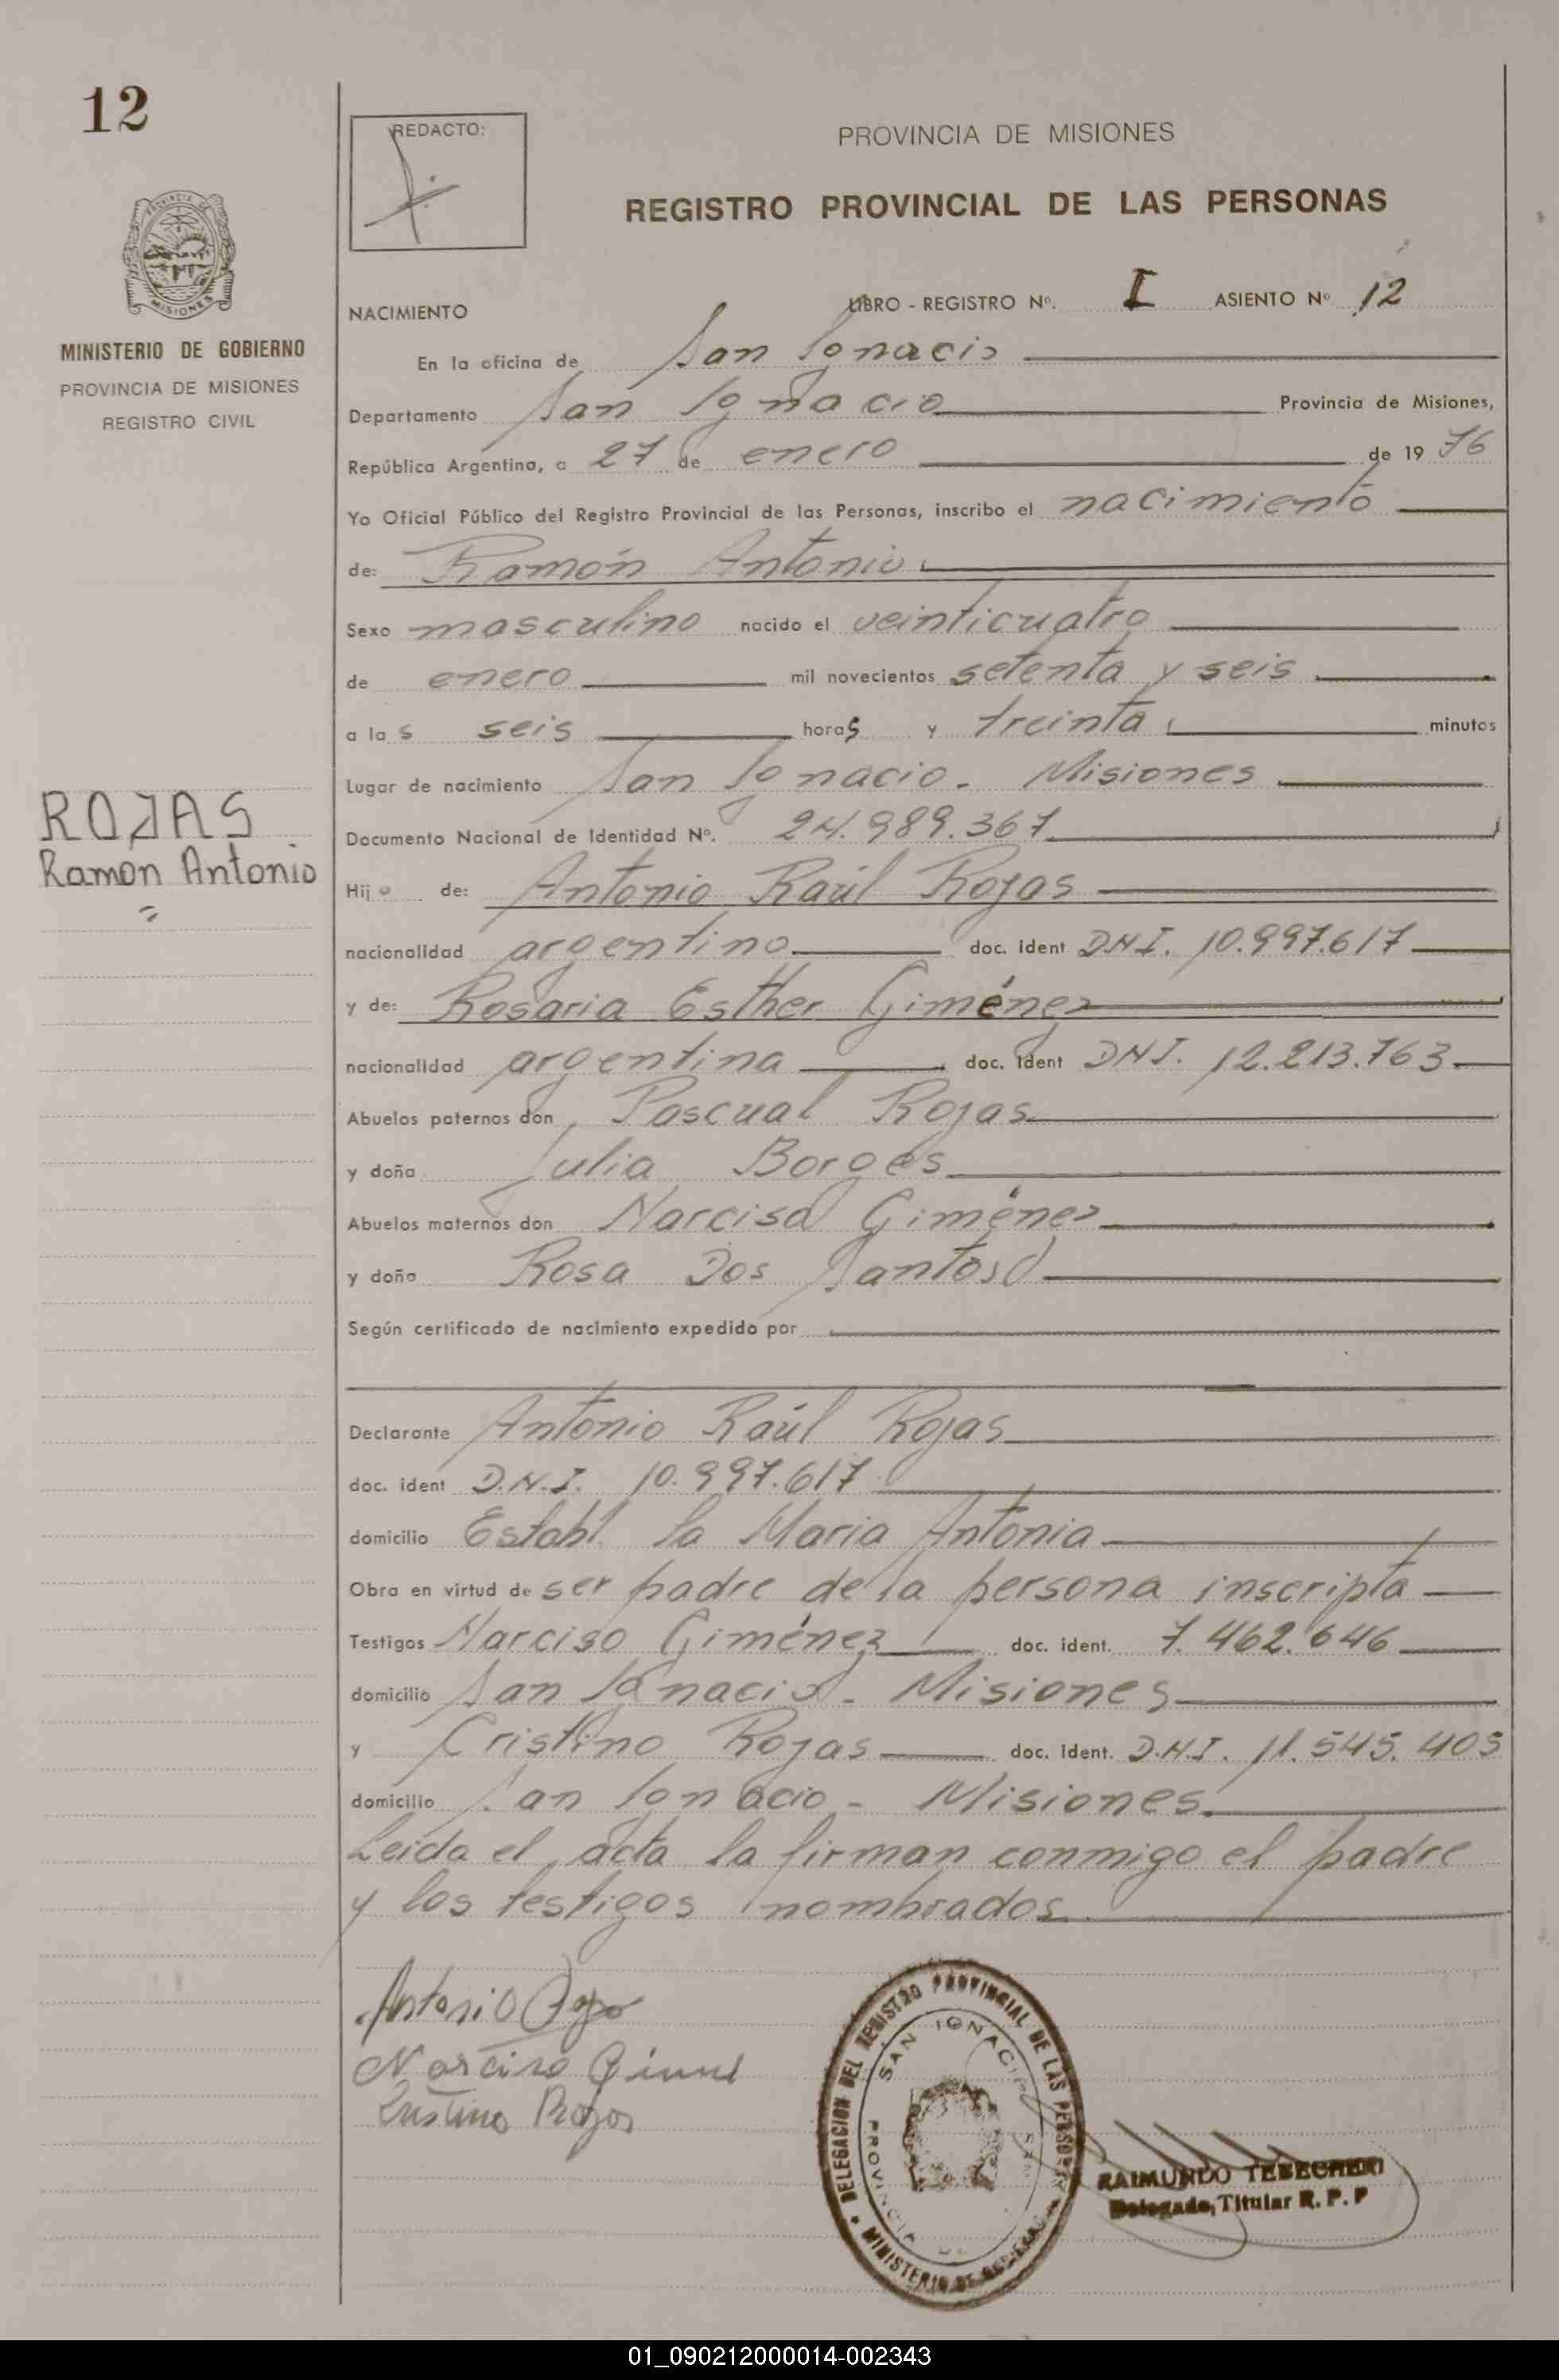 12
PROVINCIA DE MISIONES
MINISTERIO DE GOBIERNO
PROVINCIA DE MISIONES
REGISTRO CIVIL
ROJAS
Ramon Antonio
REDACTO:
PROVINCIA DE MISIONES
REGISTRO PROVINCIAL DE LAS PERSONAS
NACIMIENTO LIBRO - REGISTRO Nº. I ASIENTO Nº 12
En la oficina de San Ignacio
Departamento San Ignacio Provincia de Misiones,
República Argentina, a 27 de enero de 19 76
Yo Oficial Público del Registro Provincial de las Personas, inscribo el nacimiento
de: Ramón Antonio
Sexo masculino nacido el veinticuatro
de enero mil novecientos setenta y seis
a las seis horas y treinta minutos
Lugar de nacimiento San Ignacio - Misiones
Documento Nacional de Identidad Nº. 24.989.367
Hijo de: Antonio Raúl Rojas
nacionalidad argentino doc. ident D.N.I. 10.997.617
y de: Rosaria Esther Giménez
nacionalidad argentina doc. ident DNI. 12.213.763
Abuelos paternos don Pascual Rojas
y doña Julia Borges
Abuelos maternos don Narcisa Giménez
y doña Rosa Dos Santos
Según certificado de nacimiento expedido por
Declarante Antonio Raúl Rojas
doc. ident D.N.I. 10.997.617
domicilio Establ. la Maria Antonia
Obra en virtud de ser padre de la persona inscripta
Testigos Narciso Giménez doc. ident. 7.462.646
domicilio San Ignacio - Misiones
y Cristino Rojas doc. ident. D.N.I. 11.545.405
domicilio San Ignacio - Misiones
Leida el acta la firman conmigo el padre
y los testigos nombrados
Antonio
Narciso
Cristino Rojas
DELEGACION DEL REGISTRO PROVINCIAL DE LAS PERSONAS
SAN IGNACIO
PROVINCIA DE
MINISTERIO DE
RAIMUNDO
Delegado Titular R. P. P
01_090212000014-002343